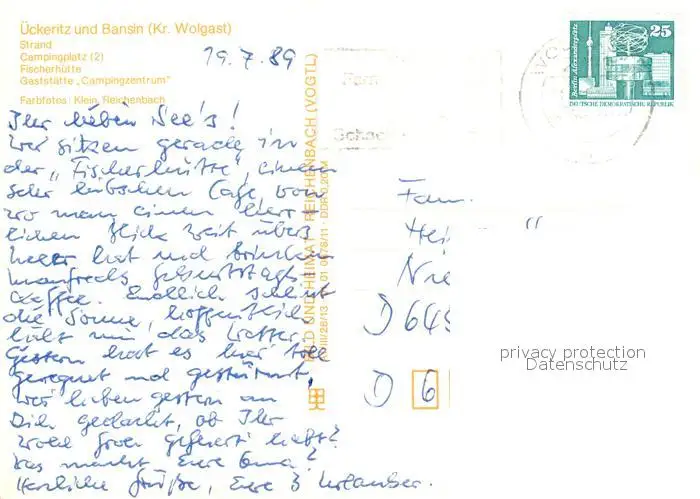 Ückeritz und Bansin (Kr. Wolgast)
Strand
Campingplatz (2)
Fischerhütte
Gaststätte „Campingzentrum“
Farbfotos: Klein, Reichenbach
19.7.89
Ihr lieben See's!
Wir sitzen gerade in
der „Fischerhütte“, einem
sehr hübschen Café, von
wo man einen herr-
lichen Blick weit übers
Meer hat und trinken
Manfreds Geburtstags-
kaffee. Endlich scheint
die Sonne, hoffentlich
hält nun das Wetter.
Gestern hat es hier toll
geregnet und gestürmt,
wir haben gestern an
Dich gedacht, ob Ihr
wohl groß gefeiert habt?
Was macht Eure Oma?
Herzliche Grüße, Eure 3 Urlauber.
BILD UND HEIMAT REICHENBACH (VOGTL)
Berlin, Alexanderplatz
25
DEUTSCHE DEMOKRATISCHE REPUBLIK
WO
Fern
Fam.
Hei
Nie
D 645
D 6
privacy protection
Datenschutz